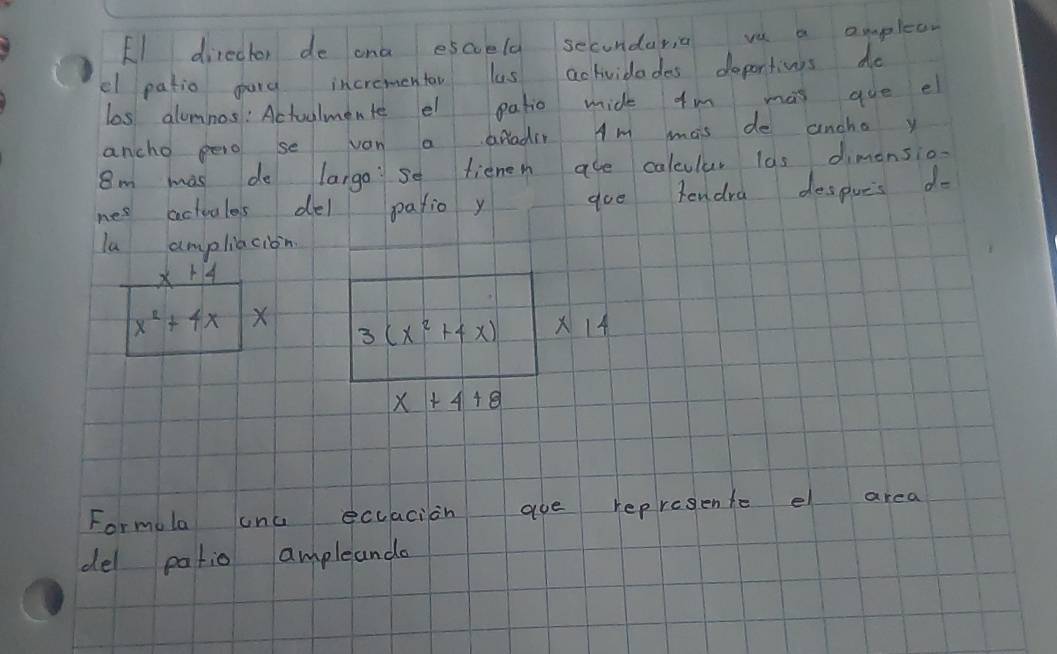 El director de una escuela secundaria va a amplear
el patio para incrementar las actividades deportivas de
los alumnos: Actualmente el patio mide 4m mas que el
ancho pero se van a añadir 4m mas de ancho y
8m mas de largo: se tienen que calcular las dimensio-
nes actuales del patio y que tendra despues de
la ampliación.
x + 4
x² + 4x x
3(x² + 4x) x 14
x + 4 + 8
Formula una ecuación que represente el area
del patio ampleando